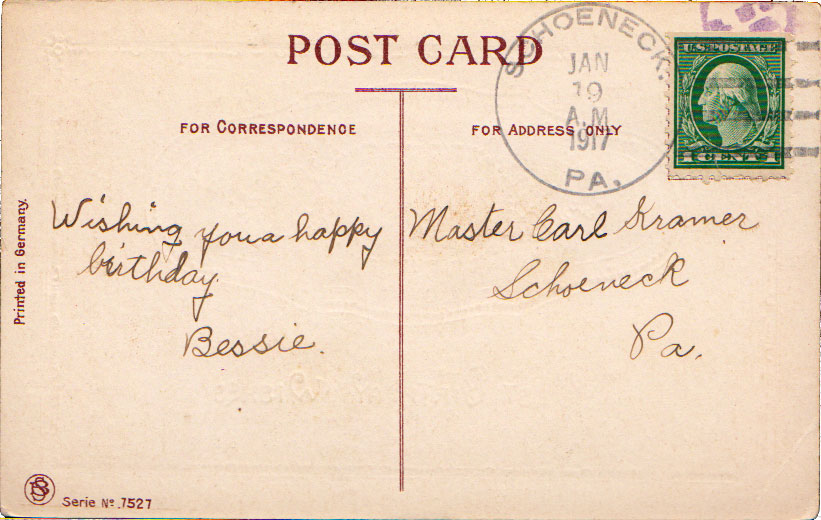 POST CARD
SCHOENECK.
JAN
19
A.M
1917
PA.
U.S. POSTAGE
1 CENT 1
FOR CORRESPONDENCE
FOR ADDRESS ONLY
Wishing you a happy
birthday.
Bessie.
Master Carl Kramer
Schoeneck
Pa.
Printed in Germany.
Serie No. 7527